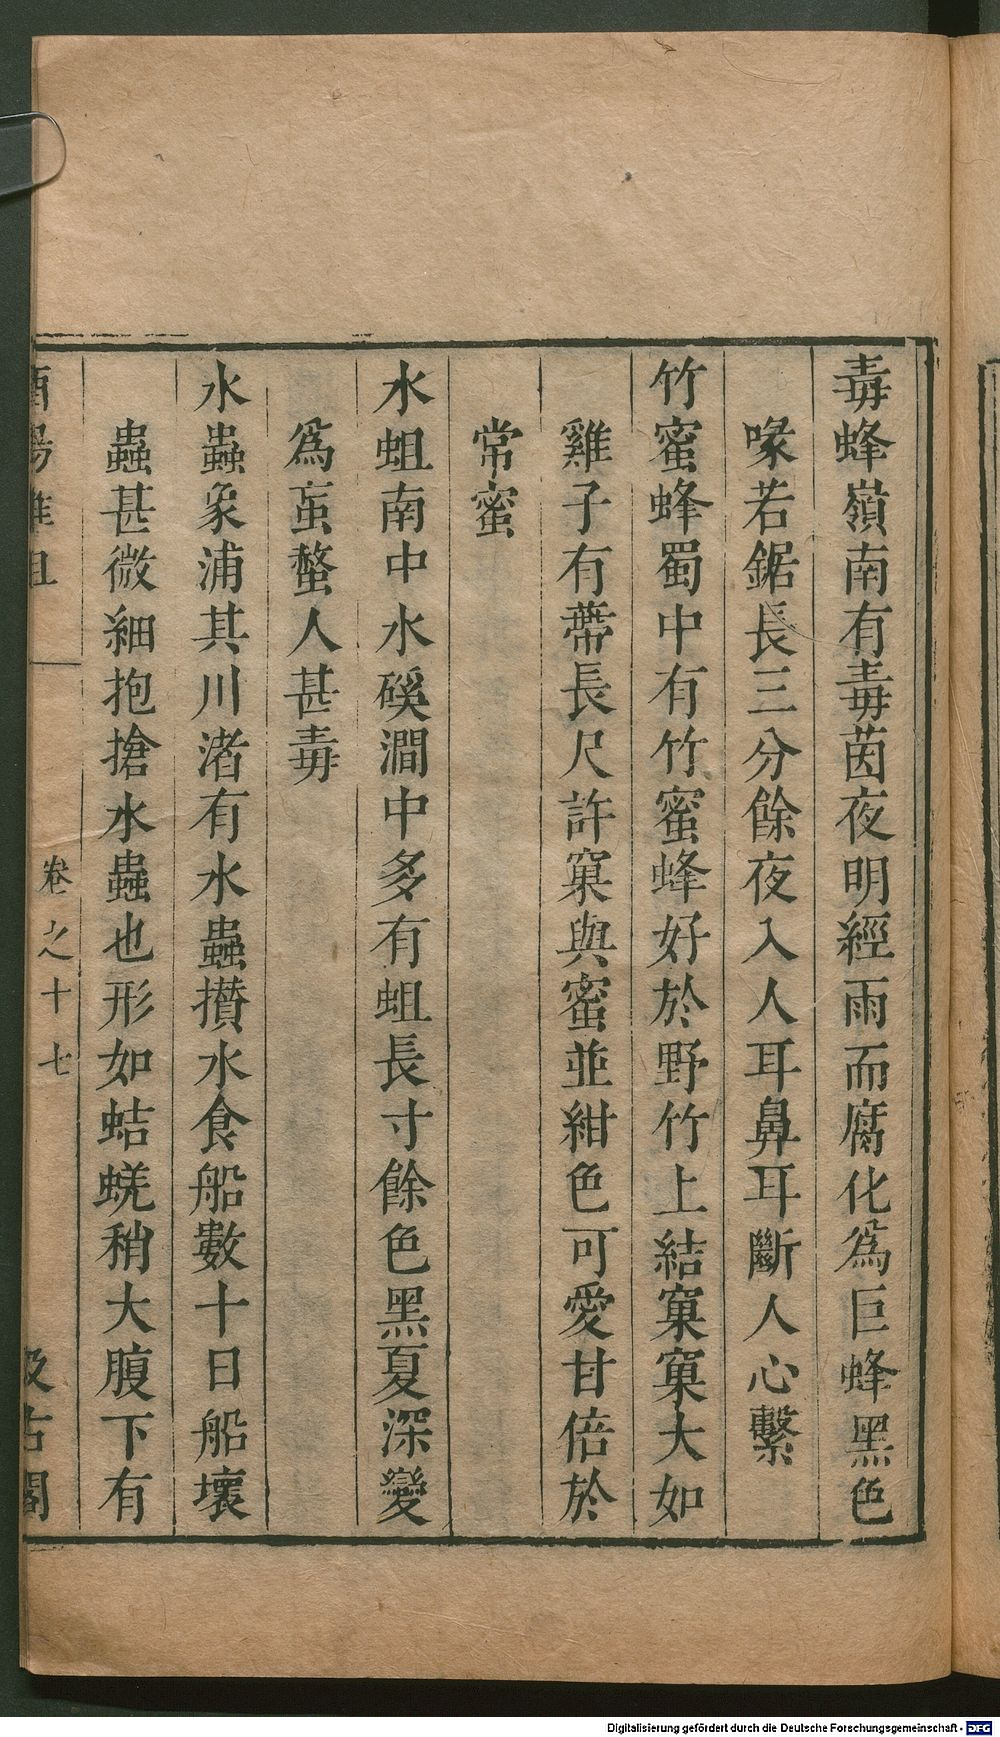 毒蜂嶺南有毒菌夜明經雨而腐化為巨蜂黑色
喙若鋸長三分餘夜入人耳鼻耳斷人心繫
竹蜜蜂蜀中有竹蜜蜂好於野竹上結窠窠大如
雞子有蔕長尺許窠與蜜並紺色可愛甘倍於
常蜜
水蛆南中水磎澗中多有蛆長寸餘色黑夏深變
為䖟螫人甚毒
水蟲象浦其川渚有水蟲攅水食船數十日船壞
蟲甚微細抱搶水蟲也形如蛣蜣稍大腹下有
酉陽雜俎 卷之十七 汲古閣
Digitalisierung gefördert durch die Deutsche Forschungsgemeinschaft - DFG